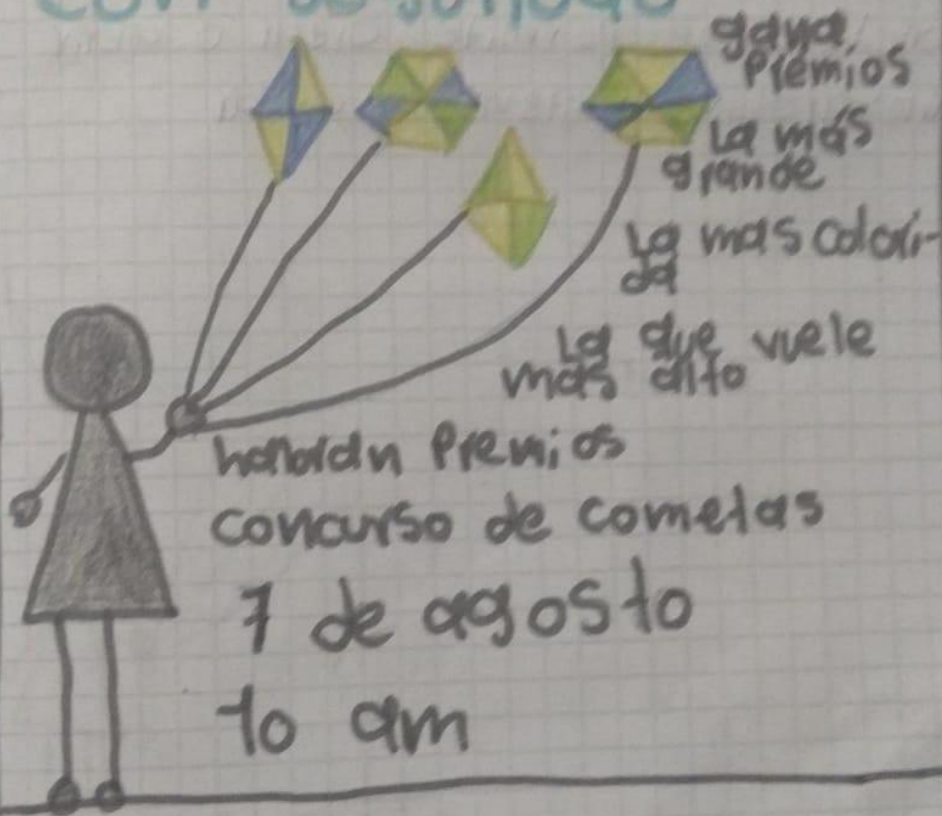 gana
Premios
La más
grande
La mas colori-
da
La que vuele
mas alto
habrán Premios
concurso de cometas
7 de agosto
10 am